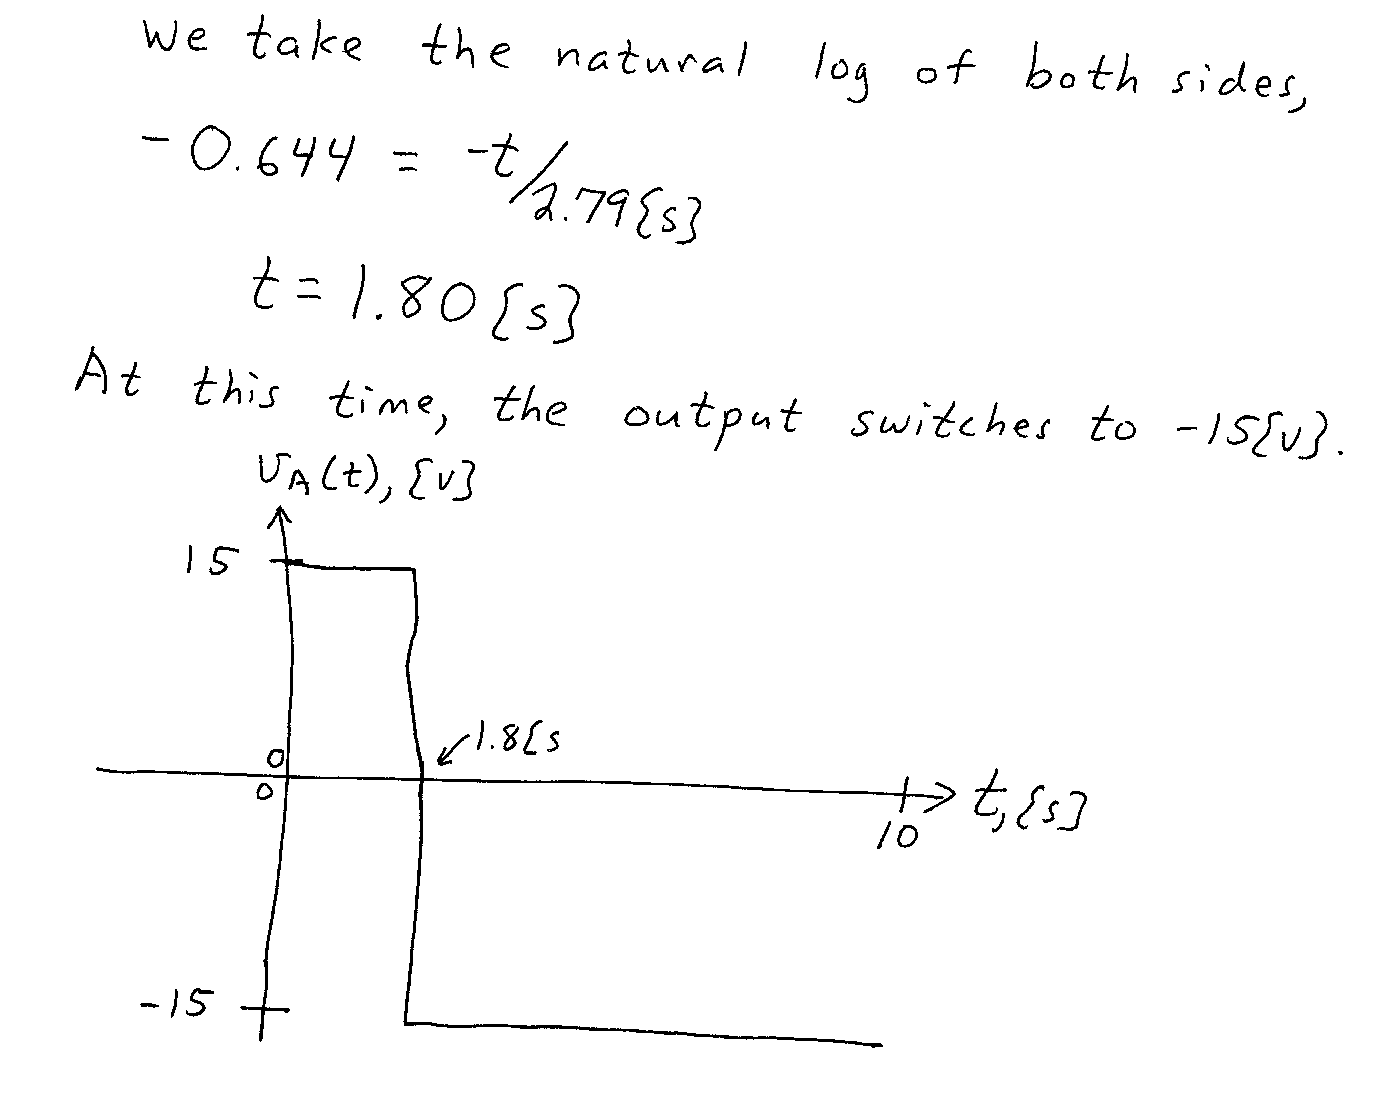 We take the natural log of both sides,
-0.644 = -t/2.79{s}
t = 1.80{s}
At this time, the output switches to -15{v}.
vA(t), {v}
15
1.8{s
0
0
t, {s}
10
-15